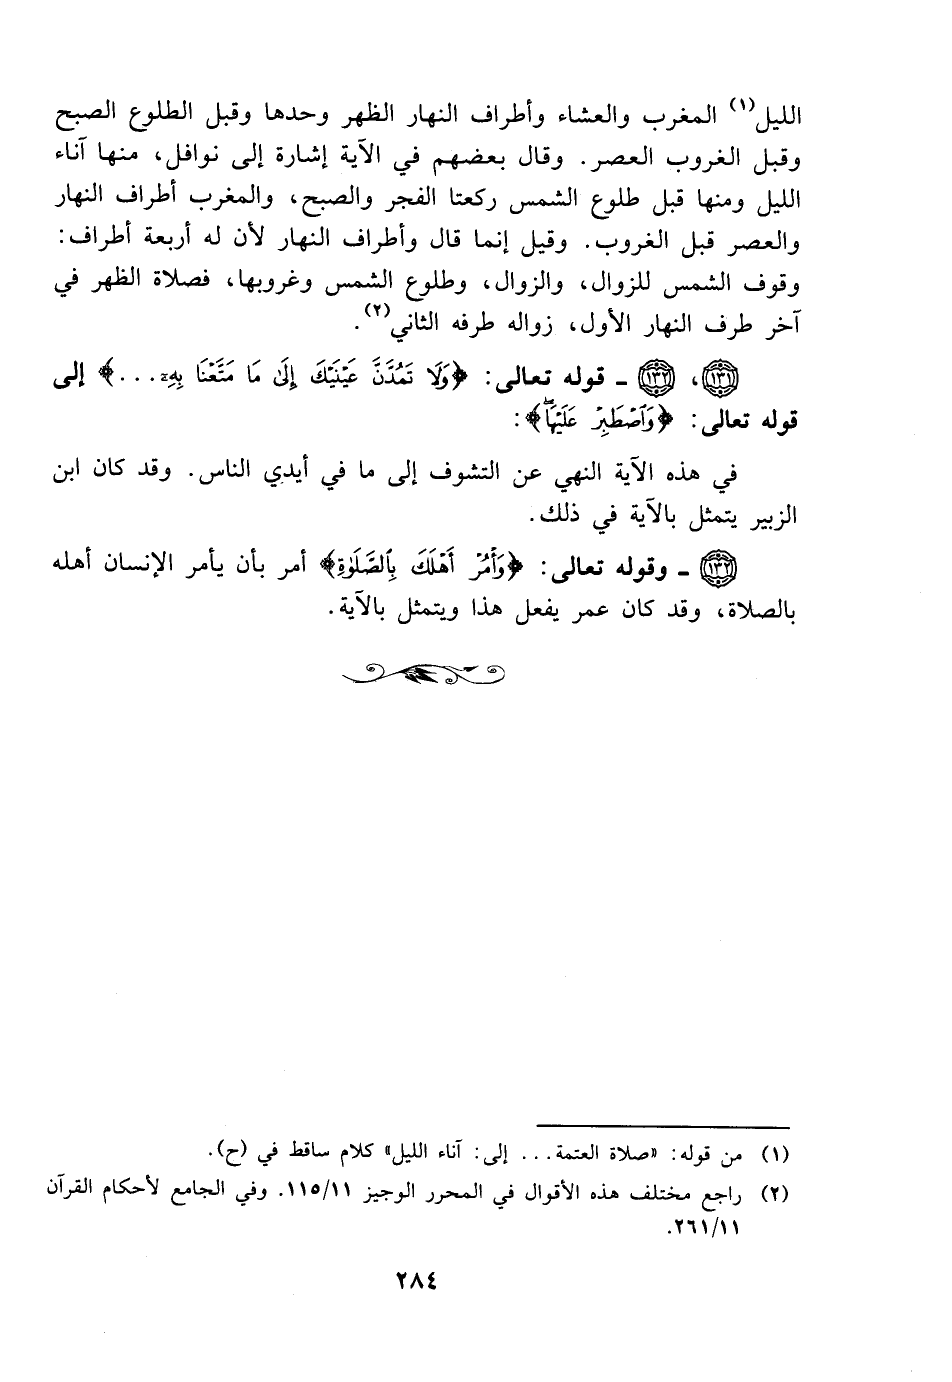 الليل(١) المغرب والعشاء وأطراف النهار الظهر وحدها وقبل الطلوع الصبح
وقبل الغروب العصر. وقال بعضهم في الآية إشارة إلى نوافل، منها آناء
الليل ومنها قبل طلوع الشمس ركعتا الفجر والصبح، والمغرب أطراف النهار
والعصر قبل الغروب. وقيل إنما قال وأطراف النهار لأن له أربعة أطراف:
وقوف الشمس للزوال، والزوال، وطلوع الشمس وغروبها، فصلاة الظهر في
آخر طرف النهار الأول، زواله طرفه الثاني(٢).
(١٣١)، (١٣٢) ـ قوله تعالى: ﴿وَلَا تَمُدَّنَّ عَيْنَيْكَ إِلَىٰ مَا مَتَّعْنَا بِهِۦٓ...﴾ إلى
قوله تعالى: ﴿وَٱصْطَبِرْ عَلَيْهَاۖ﴾:
في هذه الآية النهي عن التشوف إلى ما في أيدي الناس. وقد كان ابن
الزبير يتمثل بالآية في ذلك.
(١٣٢) ـ وقوله تعالى: ﴿وَأْمُرْ أَهْلَكَ بِٱلصَّلَوٰةِ﴾ أمر بأن يأمر الإنسان أهله
بالصلاة، وقد كان عمر يفعل هذا ويتمثل بالآية.
(١) من قوله: «صلاة العتمة... إلى: آناء الليل» كلام ساقط في (ح).
(٢) راجع مختلف هذه الأقوال في المحرر الوجيز ١١/ ١١٥. وفي الجامع لأحكام القرآن
١١/ ٢٦١.
٢٨٤